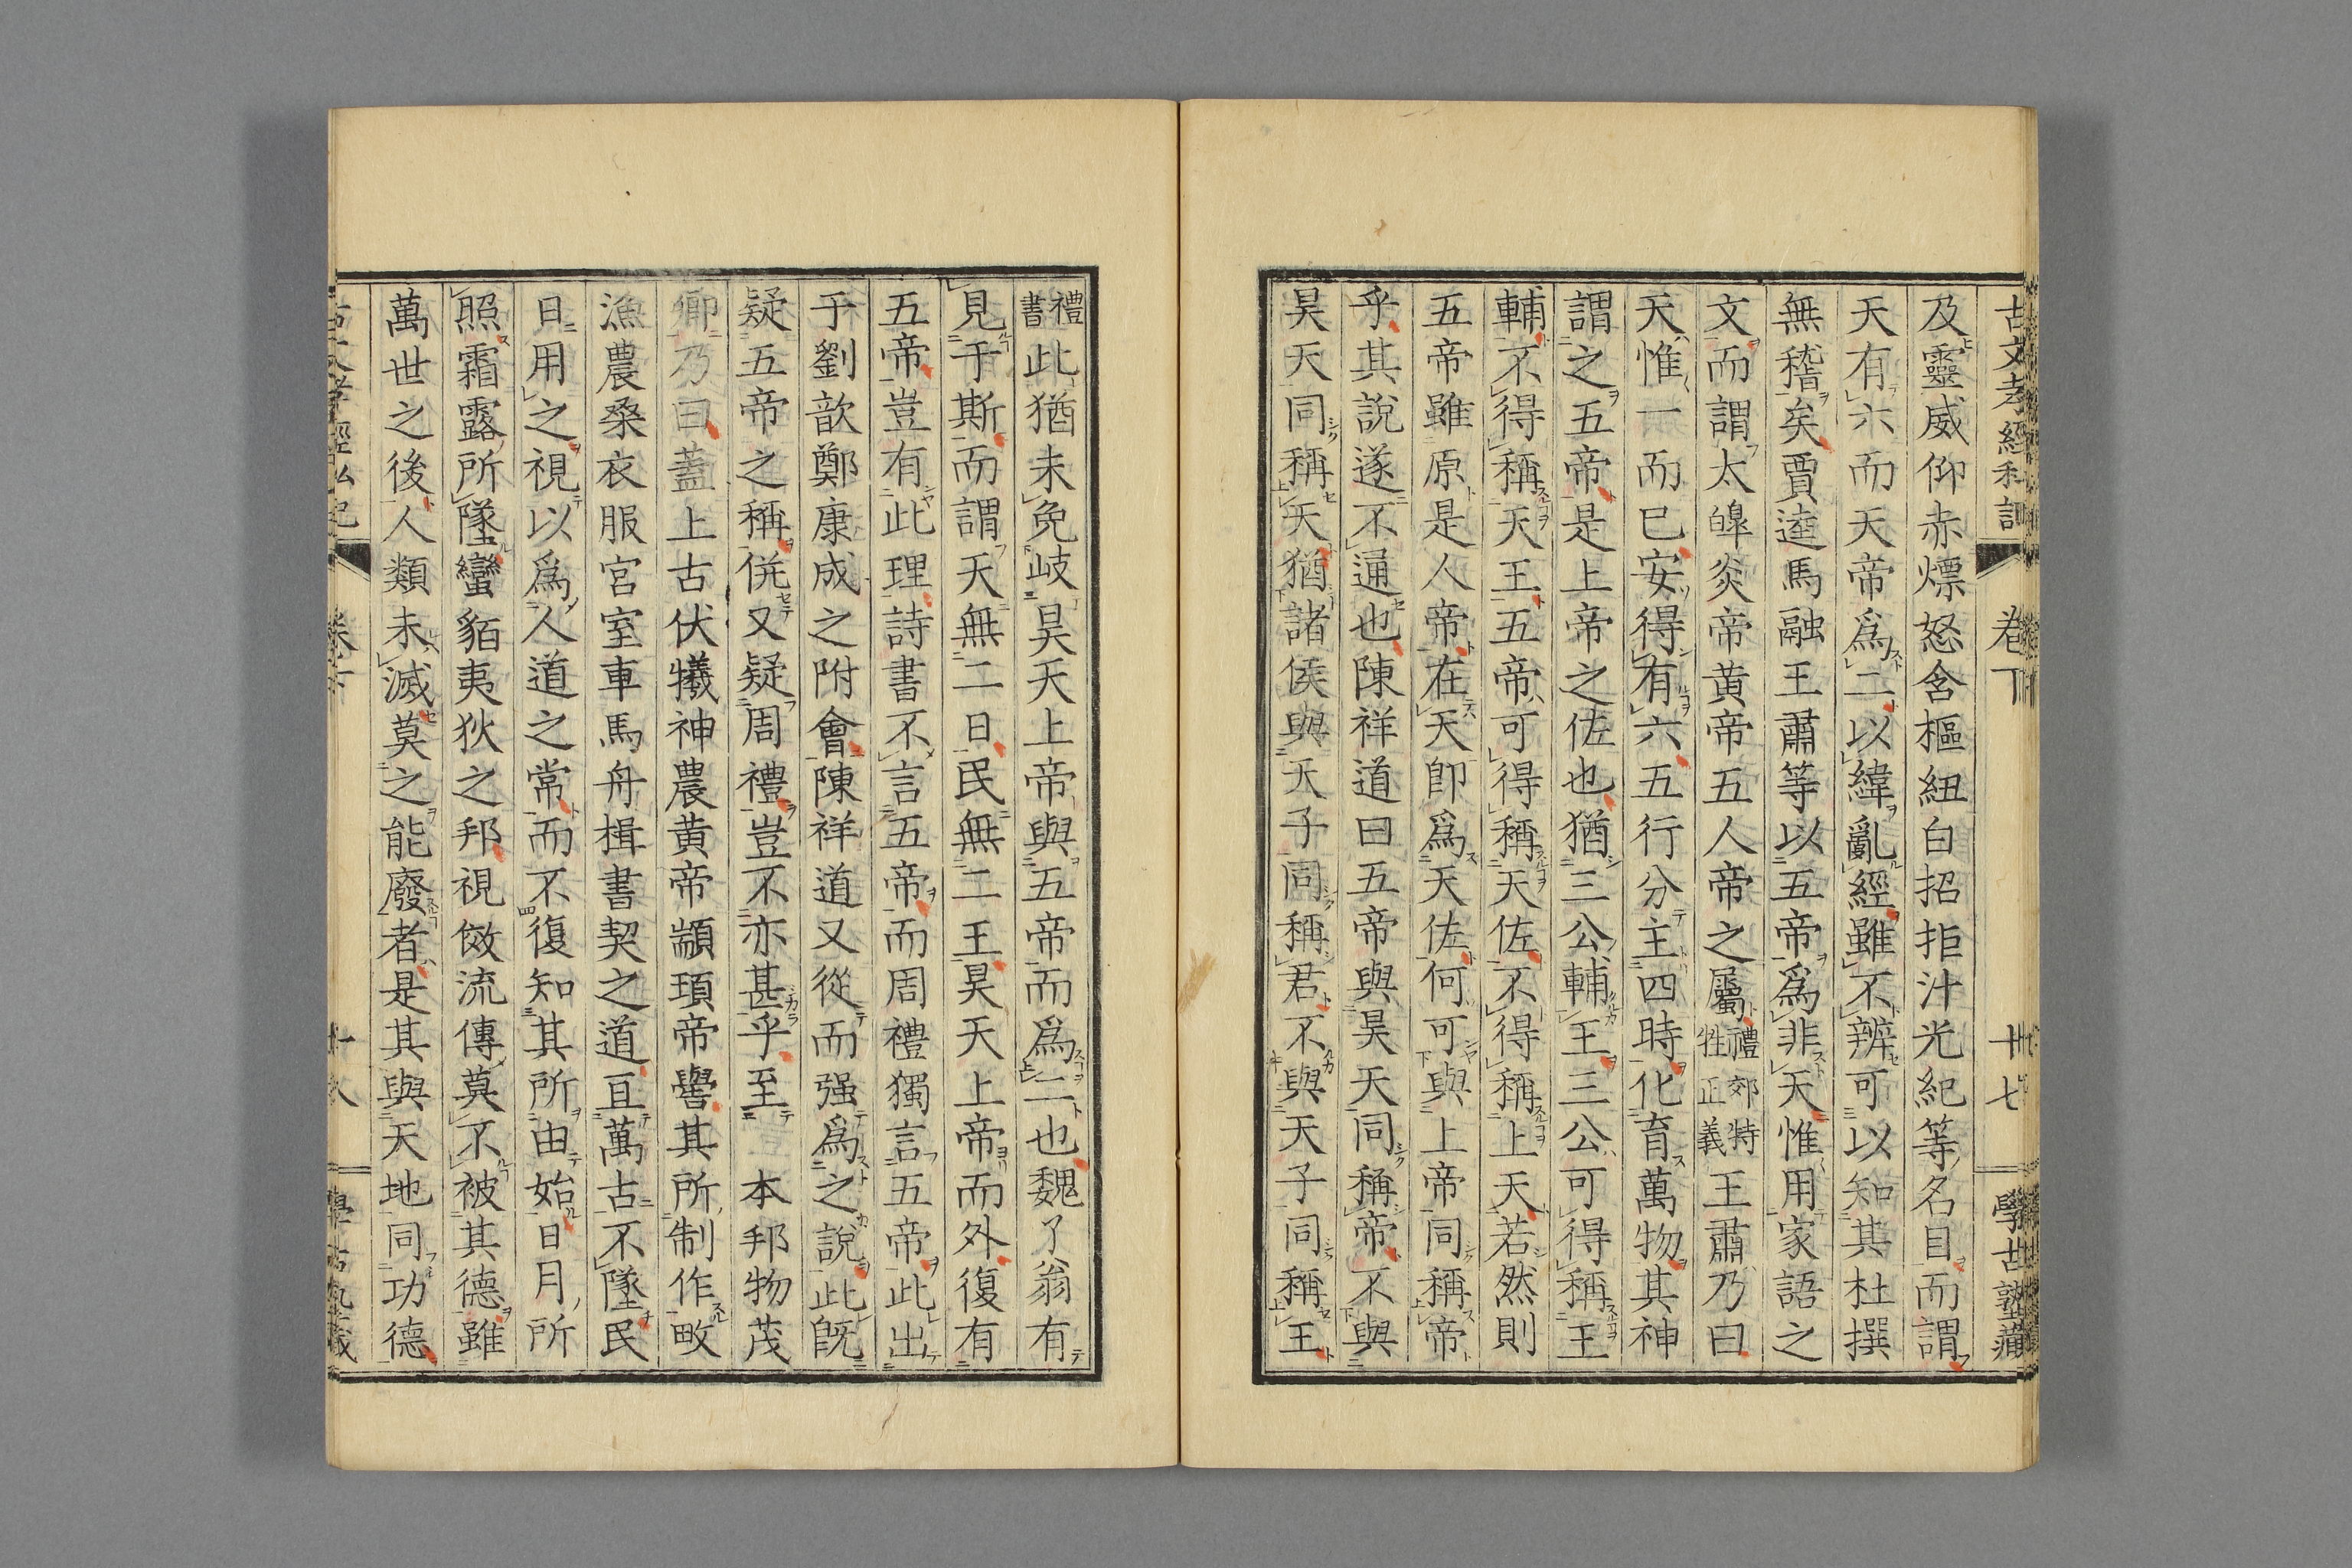 古文孝經私記 卷下 廿七 學古塾藏
及靈威仰赤熛怒含樞紐白招拒汁光紀等名目而謂
天有六而天帝爲二以緯亂經雖不辨可以知其杜撰
無稽矣賈逵馬融王肅等以五帝爲非天惟用家語之
文而謂太皥炎帝黃帝五人帝之屬禮郊特牲正義王肅乃曰
天惟一而已安得有六五行分主四時化育萬物其神
謂之五帝是上帝之佐也猶三公輔王三公可得稱王
輔不得稱天王五帝可得稱天佐不得稱上天若然則
五帝雖原是人帝在天卽爲天佐何可與上帝同稱帝
乎其說遂不通也陳祥道曰五帝與昊天同稱帝不與
昊天同稱天猶諸侯與天子同稱君不與天子同稱王
禮書此猶未免岐昊天上帝與五帝而爲二也魏了翁有
見于斯而謂天無二日民無二王昊天上帝而外復有
五帝豈有此理詩書不言五帝而周禮獨言五帝此出
于劉歆鄭康成之附會陳祥道又從而强爲之說此旣
疑五帝之稱併又疑周禮豈不亦甚乎至本邦物茂
卿乃曰蓋上古伏犧神農黃帝顓頊帝嚳其所制作畋
漁農桑衣服宮室車馬舟楫書契之道亘萬古不墜民
日用之視以爲人道之常而不復知其所由始日月所
照霜露所墜蠻貊夷狄之邦視傚流傳莫不被其德雖
萬世之後人類未滅莫之能廢者是其與天地同功德